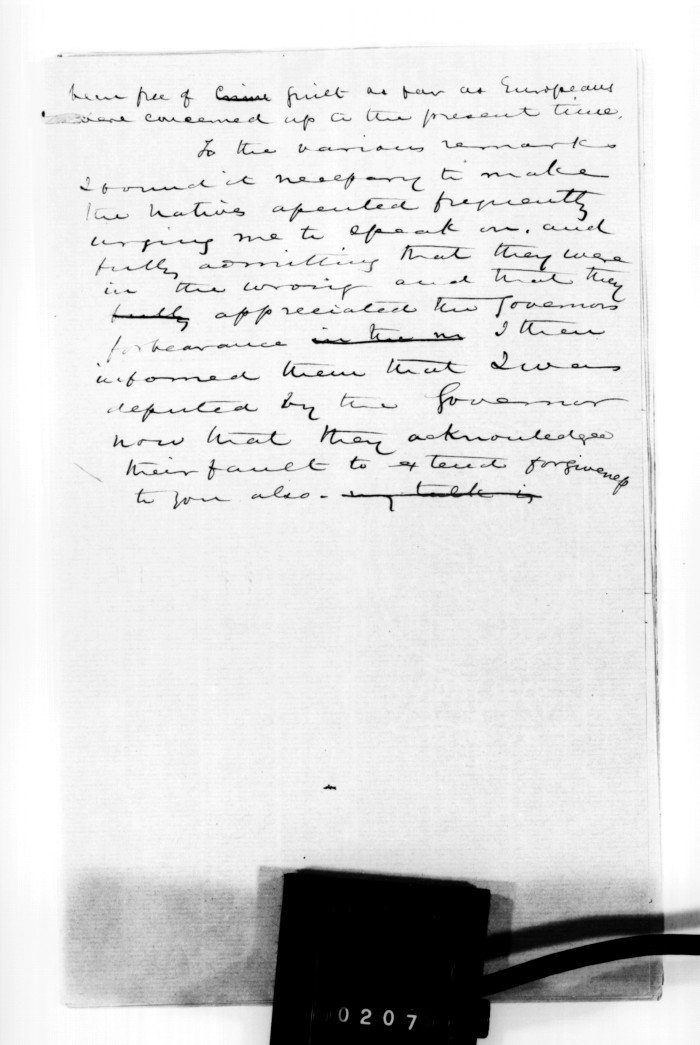 been free of ~~Crime~~ guilt as far as Europeans
were concerned up to the present time.
To the various remarks
I found it necessary to make
the Natives assented frequently
urging me to speak on, and
fully admitting that they were
in the wrong and that they
~~fully~~ appreciated the Governors
forbearance ~~in the m~~ I then
informed them that I was
deputed by the Governor
now that they acknowledged
their fault to extend forgiveness
to you also - ~~my talk is~~
0207